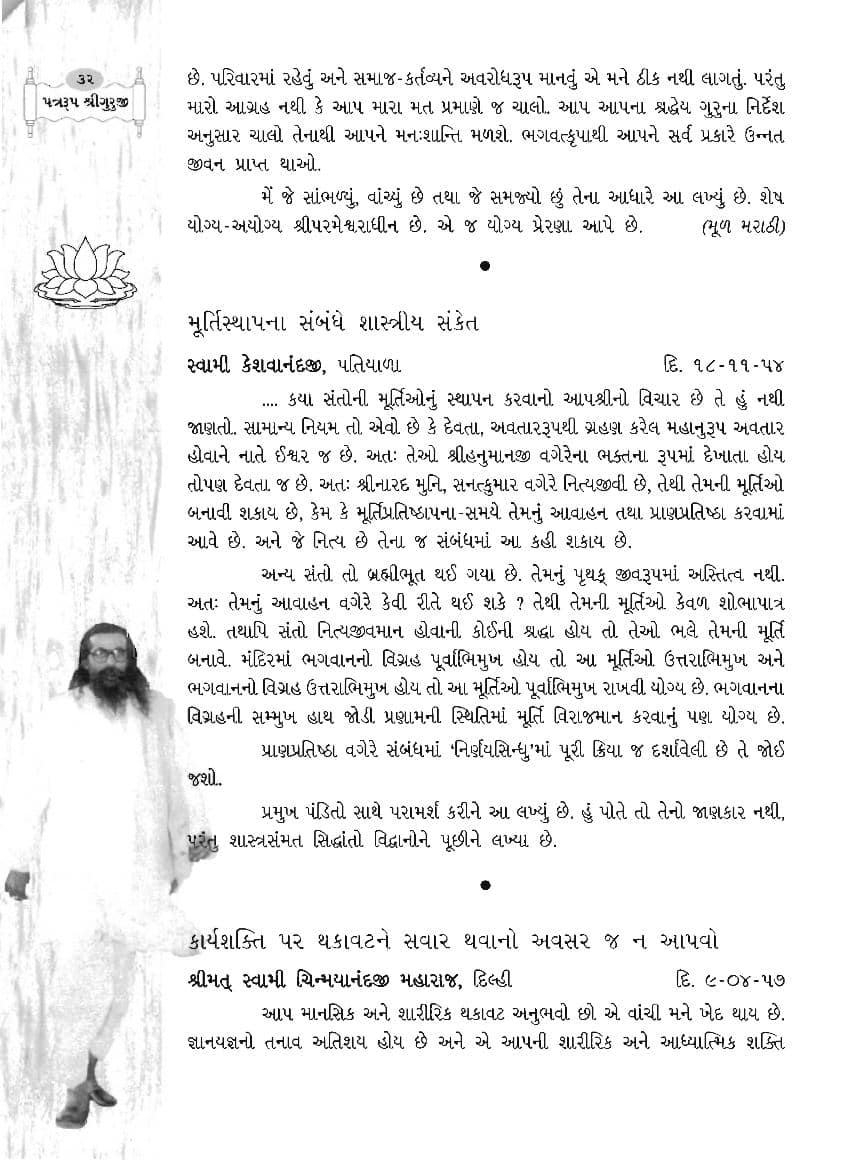 ૩૨
પત્રરૂપ શ્રીગુરુજી
છે. પરિવારમાં રહેવું અને સમાજ-કર્તવ્યને અવરોધરૂપ માનવું એ મને ઠીક નથી લાગતું. પરંતુ
મારો આગ્રહ નથી કે આપ મારા મત પ્રમાણે જ ચાલો. આપ આપના શ્રદ્ધેય ગુરુના નિર્દેશ
અનુસાર ચાલો તેનાથી આપને મનઃશાન્તિ મળશે. ભગવત્કૃપાથી આપને સર્વ પ્રકારે ઉન્નત
જીવન પ્રાપ્ત થાઓ.
મેં જે સાંભળ્યું, વાંચ્યું છે તથા જે સમજ્યો છું તેના આધારે આ લખ્યું છે. શેષ
યોગ્ય-અયોગ્ય શ્રીપરમેશ્વરાધીન છે. એ જ યોગ્ય પ્રેરણા આપે છે. (મૂળ મરાઠી)
●
મૂર્તિસ્થાપના સંબંધે શાસ્ત્રીય સંકેત
સ્વામી કેશવાનંદજી, પતિયાળા દિ. ૧૮-૧૧-૫૪
.... કયા સંતોની મૂર્તિઓનું સ્થાપન કરવાનો આપશ્રીનો વિચાર છે તે હું નથી
જાણતો. સામાન્ય નિયમ તો એવો છે કે દેવતા, અવતારરૂપથી ગ્રહણ કરેલ મહાનુરૂપ અવતાર
હોવાને નાતે ઈશ્વર જ છે. અતઃ તેઓ શ્રીહનુમાનજી વગેરેના ભક્તના રૂપમાં દેખાતા હોય
તોપણ દેવતા જ છે. અતઃ શ્રીનારદ મુનિ, સનત્કુમાર વગેરે નિત્યજીવી છે, તેથી તેમની મૂર્તિઓ
બનાવી શકાય છે, કેમ કે મૂર્તિપ્રતિષ્ઠાપના-સમયે તેમનું આવાહન તથા પ્રાણપ્રતિષ્ઠા કરવામાં
આવે છે. અને જે નિત્ય છે તેના જ સંબંધમાં આ કહી શકાય છે.
અન્ય સંતો તો બ્રહ્મીભૂત થઈ ગયા છે. તેમનું પૃથક્ જીવરૂપમાં અસ્તિત્વ નથી.
અતઃ તેમનું આવાહન વગેરે કેવી રીતે થઈ શકે ? તેથી તેમની મૂર્તિઓ કેવળ શોભાપાત્ર
હશે. તથાપિ સંતો નિત્યજીવમાન હોવાની કોઈની શ્રદ્ધા હોય તો તેઓ ભલે તેમની મૂર્તિ
બનાવે. મંદિરમાં ભગવાનનો વિગ્રહ પૂર્વાભિમુખ હોય તો આ મૂર્તિઓ ઉત્તરાભિમુખ અને
ભગવાનનો વિગ્રહ ઉત્તરાભિમુખ હોય તો આ મૂર્તિઓ પૂર્વાભિમુખ રાખવી યોગ્ય છે. ભગવાનના
વિગ્રહની સમ્મુખ હાથ જોડી પ્રણામની સ્થિતિમાં મૂર્તિ વિરાજમાન કરવાનું પણ યોગ્ય છે.
પ્રાણપ્રતિષ્ઠા વગેરે સંબંધમાં ‘નિર્ણયસિન્ધુ’માં પૂરી ક્રિયા જ દર્શાવેલી છે તે જોઈ
જશો.
પ્રમુખ પંડિતો સાથે પરામર્શ કરીને આ લખ્યું છે. હું પોતે તો તેનો જાણકાર નથી,
પરંતુ શાસ્ત્રસંમત સિદ્ધાંતો વિદ્વાનોને પૂછીને લખ્યા છે.
●
કાર્યશક્તિ પર થકાવટને સવાર થવાનો અવસર જ ન આપવો
શ્રીમત્ સ્વામી ચિન્મયાનંદજી મહારાજ, દિલ્હી દિ. ૯-૦૪-૫૭
આપ માનસિક અને શારીરિક થકાવટ અનુભવો છો એ વાંચી મને ખેદ થાય છે.
જ્ઞાનયજ્ઞનો તનાવ અતિશય હોય છે અને એ આપની શારીરિક અને આધ્યાત્મિક શક્તિ